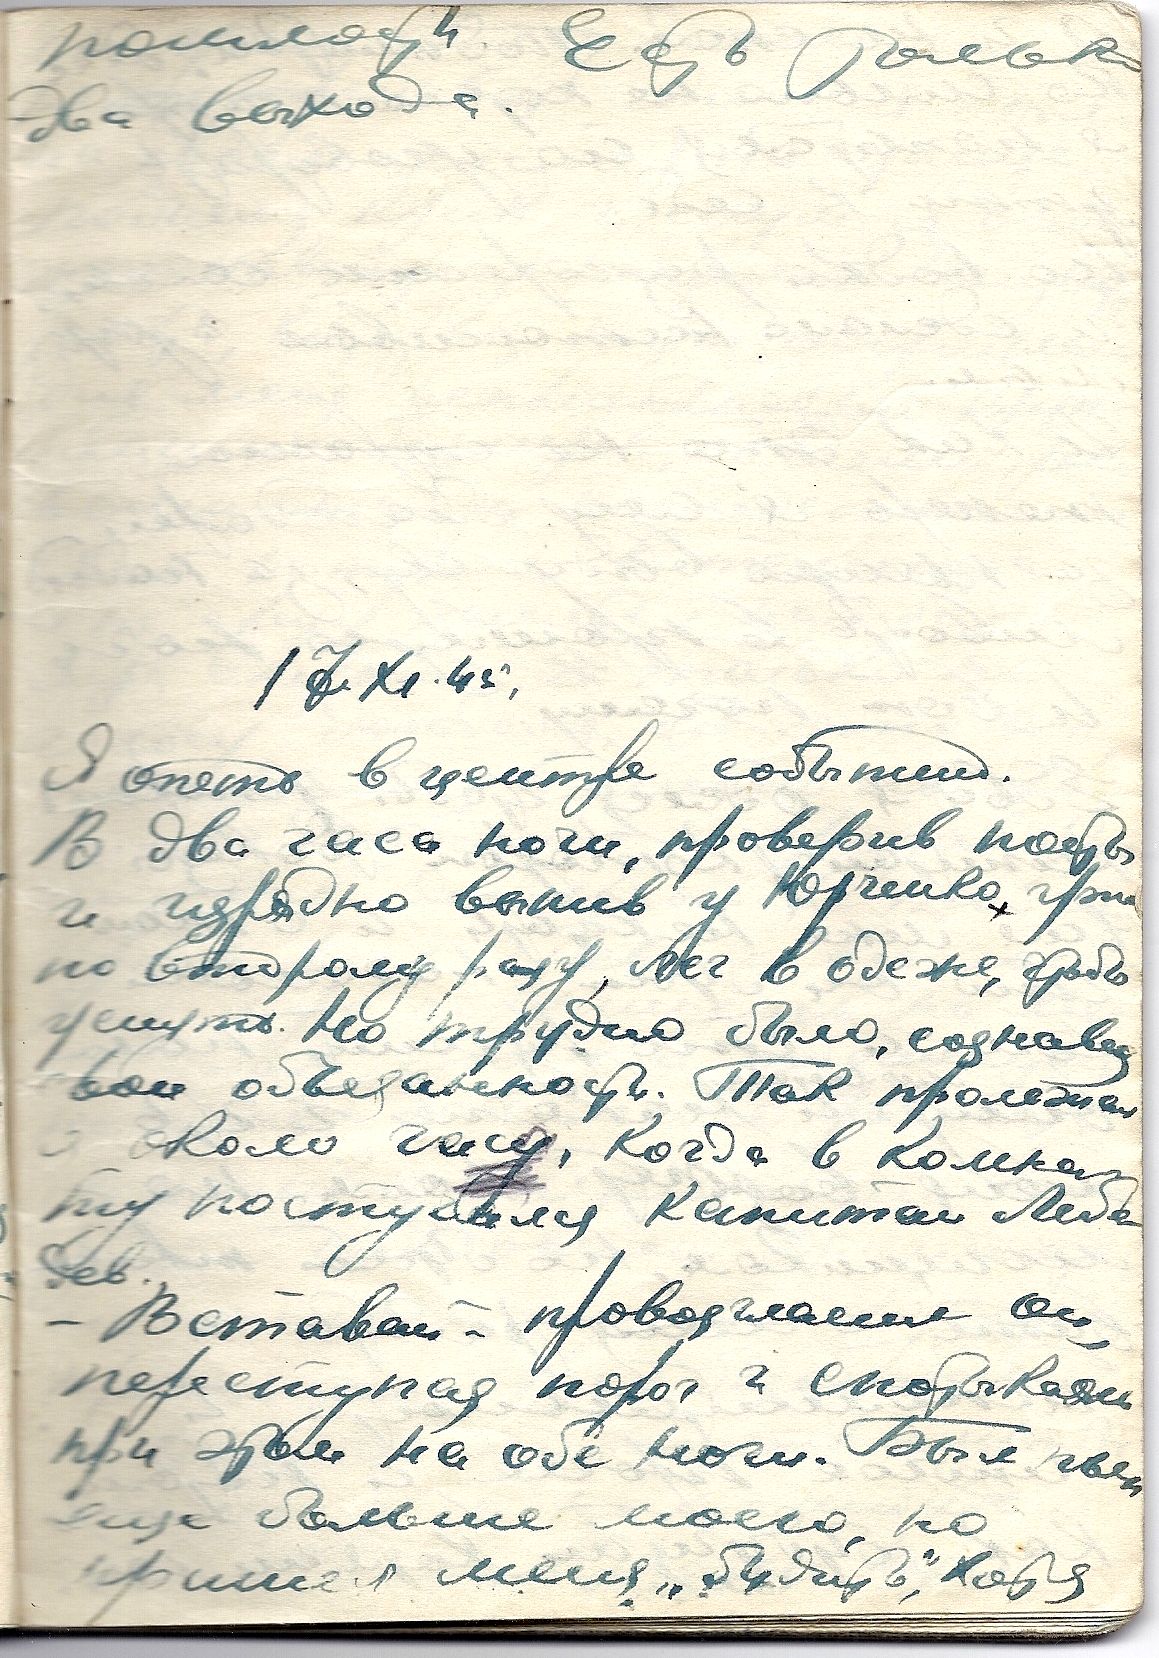 пошлость. Есть только
два выхода.
17. XI. 45.
Я опять в центре событий.
В два часа ночи, проверив посты
и изрядно выпив у Юрченко,
по второму разу, лег в одеже, чтобы
уснуть. Но трудно было, сознавая
свои обязанности. Так пролежал
я около часу, когда в комна
ту постучался капитан Лебе
дев.
- Вставай - провозгласил он,
переступая порог и спотыкаясь
при этом на обе ноги. Был пьян
еще больше моего, но
пришел меня „будить", хотя